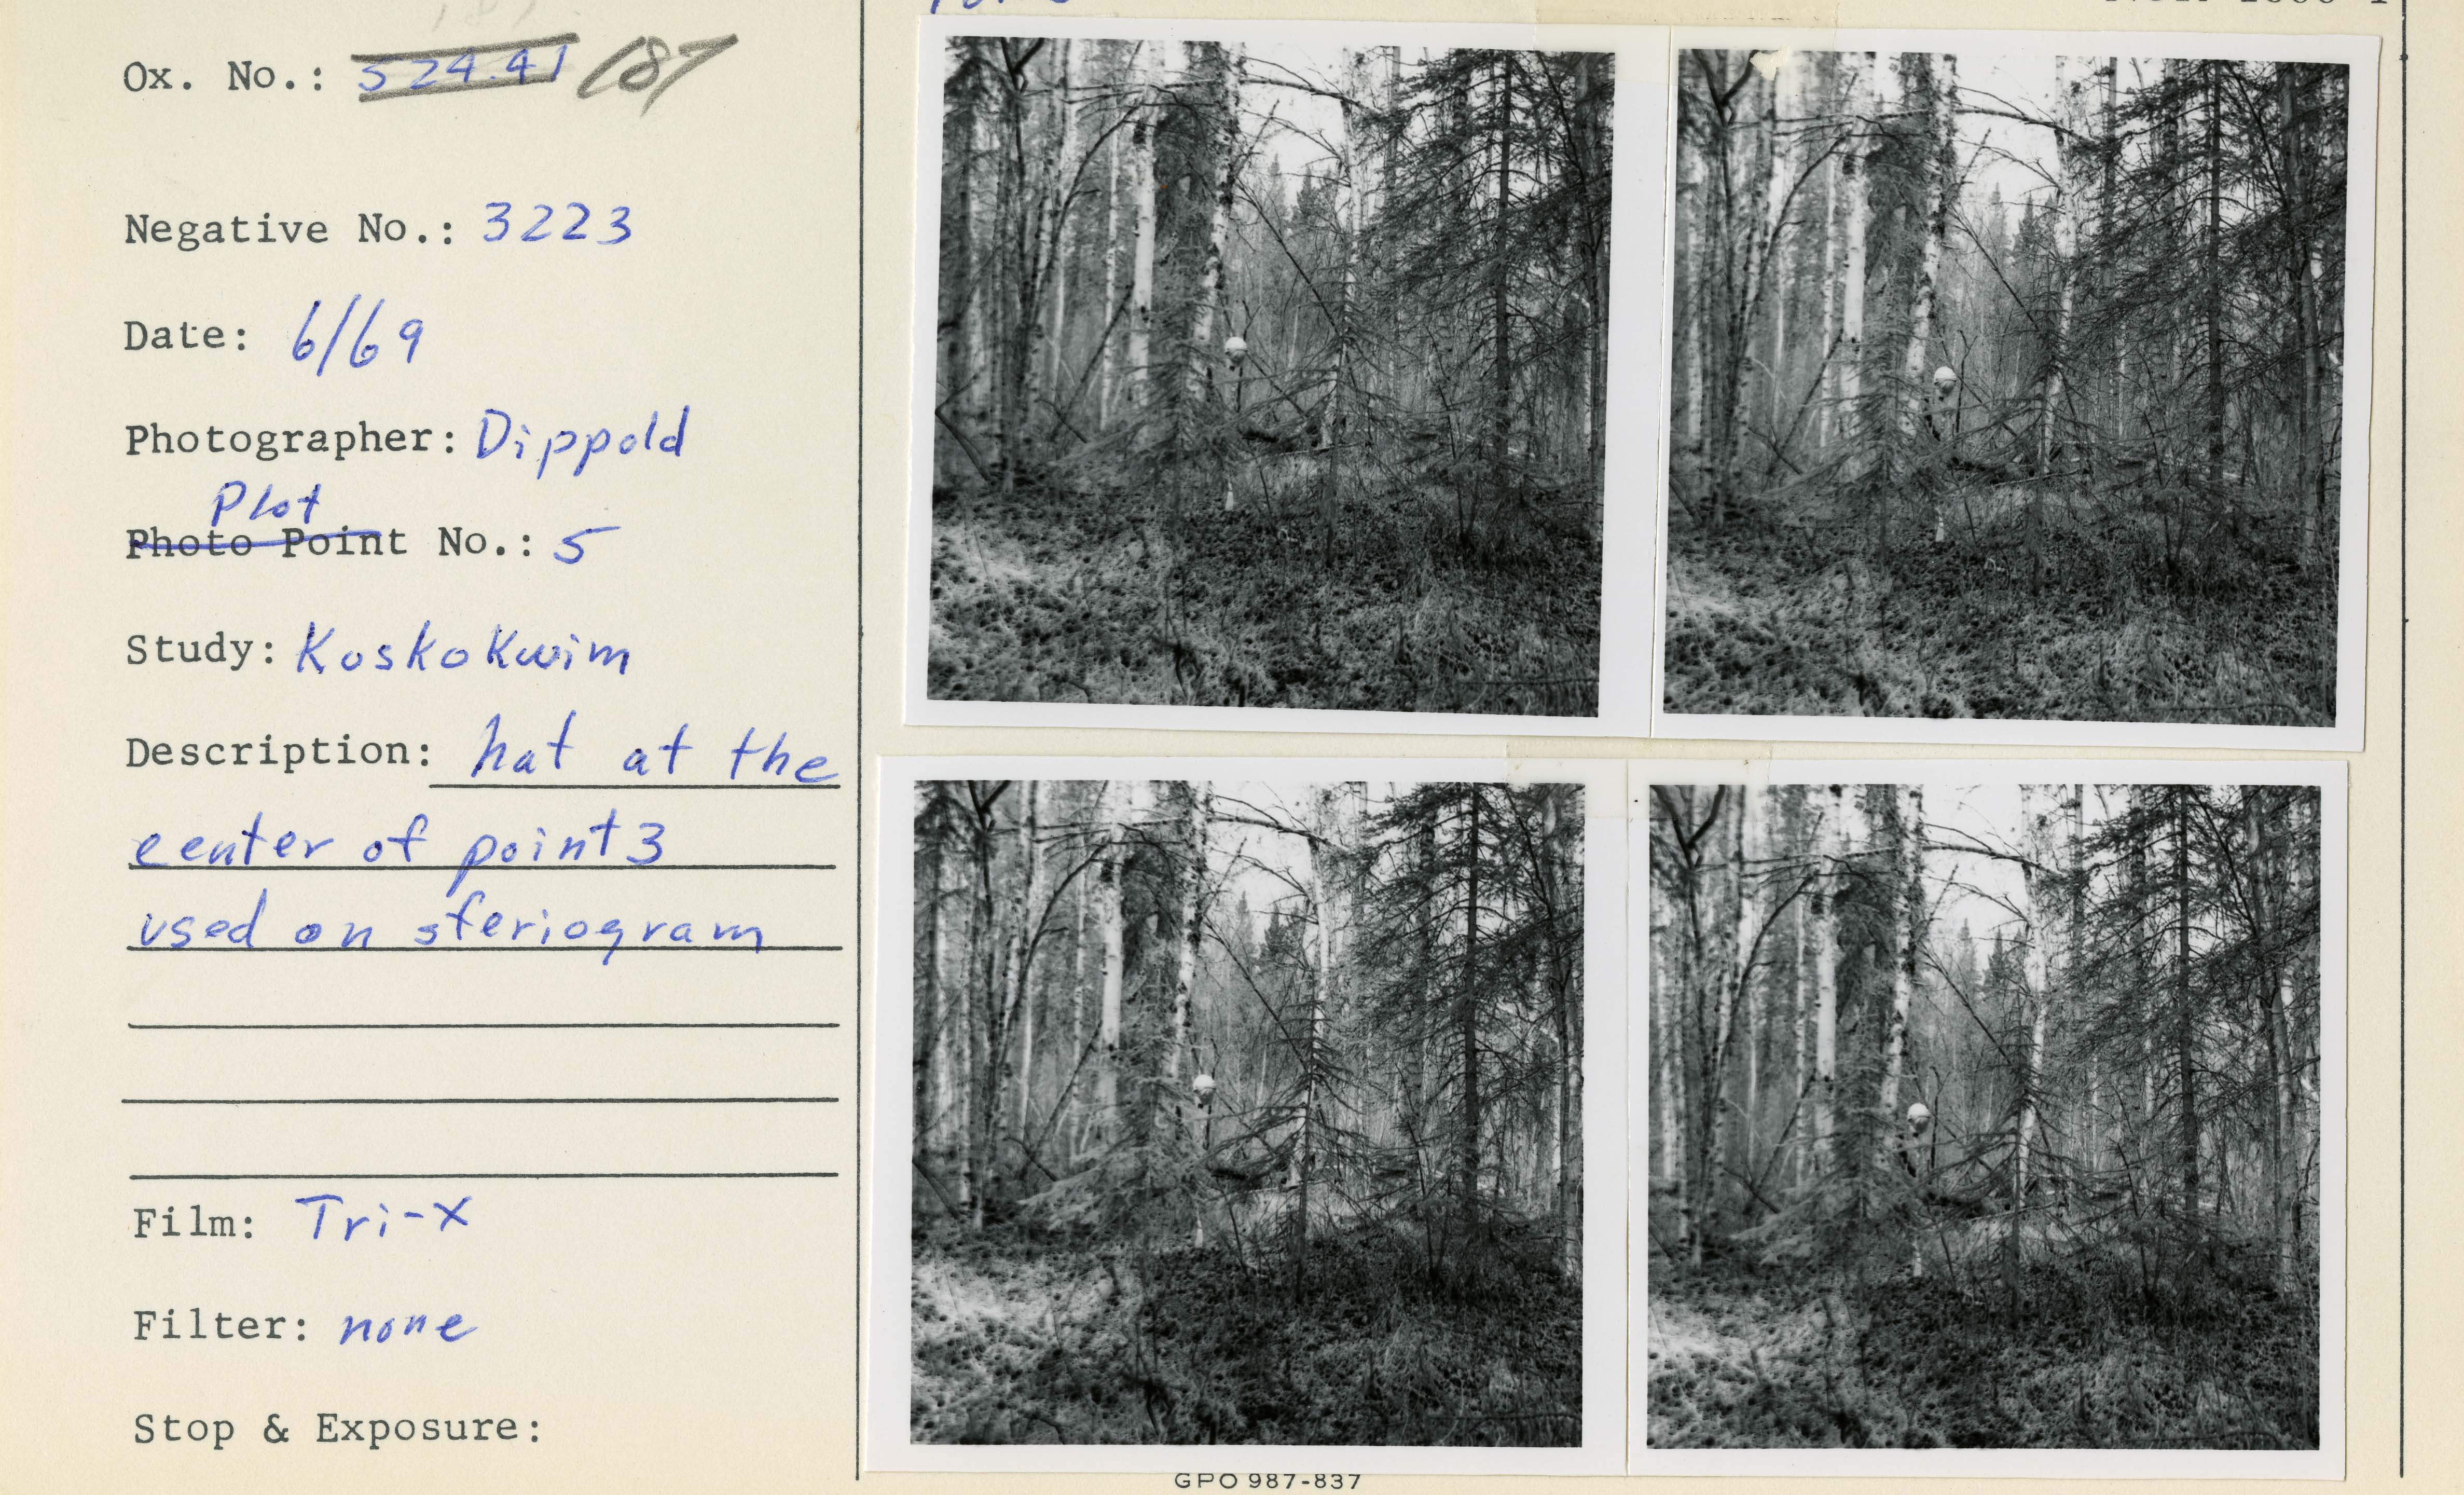 Ox. No.: 524.41 187
Negative No.: 3223
Date: 6/69
Photographer: Dippold
Plot
Photo Point No.: 5
Study: Koskokwim
Description: hat at the
center of point 3
used on steriogram
Film: Tri-X
Filter: none
Stop & Exposure:
GPO 987-837